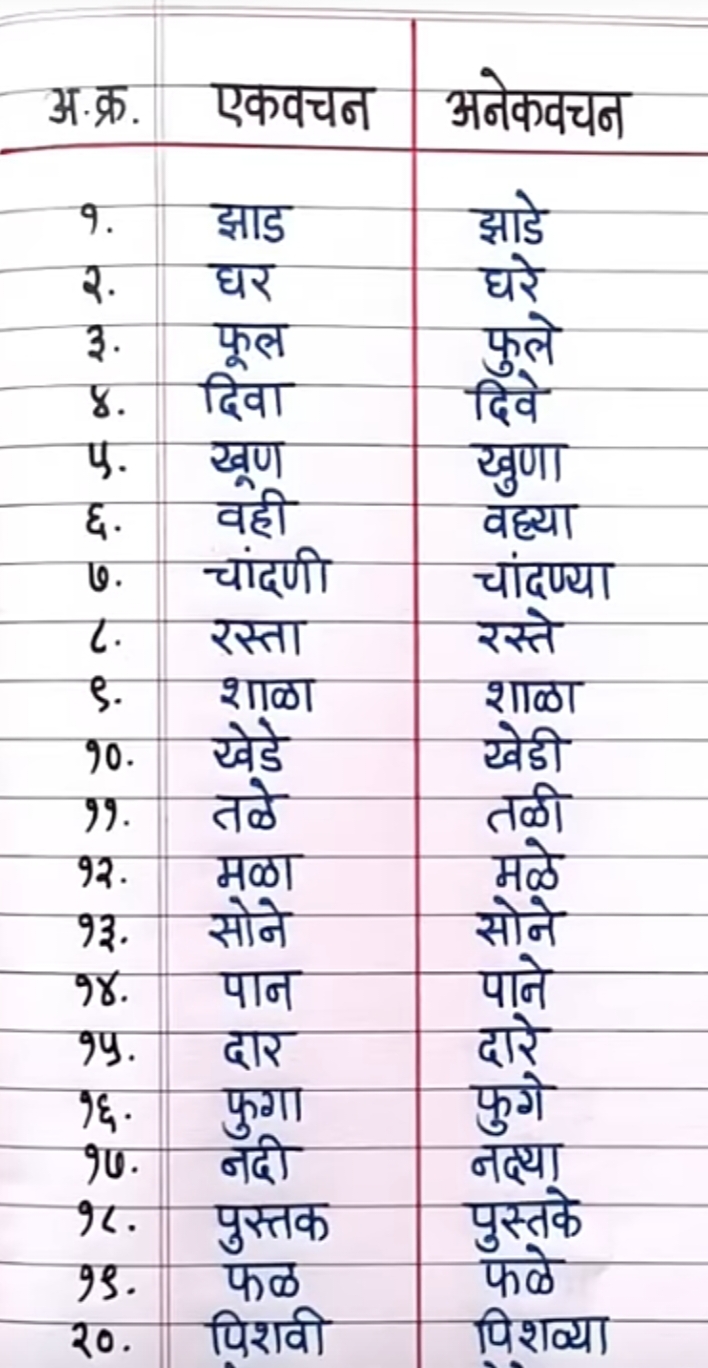 अ.क्र. एकवचन अनेकवचन
१. झाड झाडे
२. घर घरे
३. फूल फुले
४. दिवा दिवे
५. खूण खुणा
६. वही वह्या
७. चांदणी चांदण्या
८. रस्ता रस्ते
९. शाळा शाळा
१०. खेडे खेडी
११. तळे तळी
१२. मळा मळे
१३. सोने सोने
१४. पान पाने
१५. दार दारे
१६. फुगा फुगे
१७. नदी नद्या
१८. पुस्तक पुस्तके
१९. फळ फळे
२०. पिशवी पिशव्या